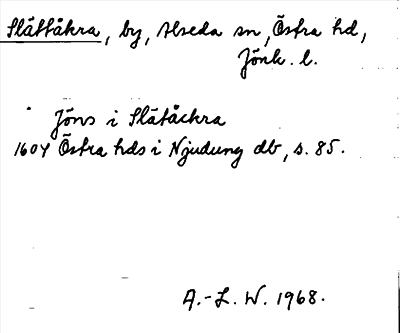 Slättåkra, by, Alseda sn, Östra hd,
Jönk. l.
Jöns i Slätåckra
1604 Östra hds i Njudung db, s. 85.
A.-L. W. 1968.